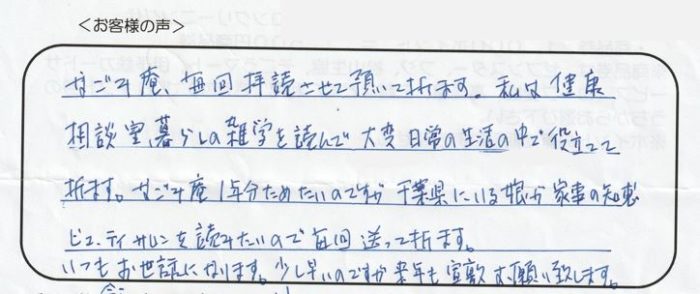 ＜お客様の声＞
なごみ庵、毎回拝読させて頂いて折ます。私は健康
相談室、暮らしの雑学を読んで大変日常の生活の中で役立てて
折ます。なごみ庵1年分ためたいのですが千葉県にいる娘が家事の知恵
ビューティサロンを読みたいので毎回送って折ます。
いつもお世話になります。少し早いのですが来年も宜敷お願い致します。